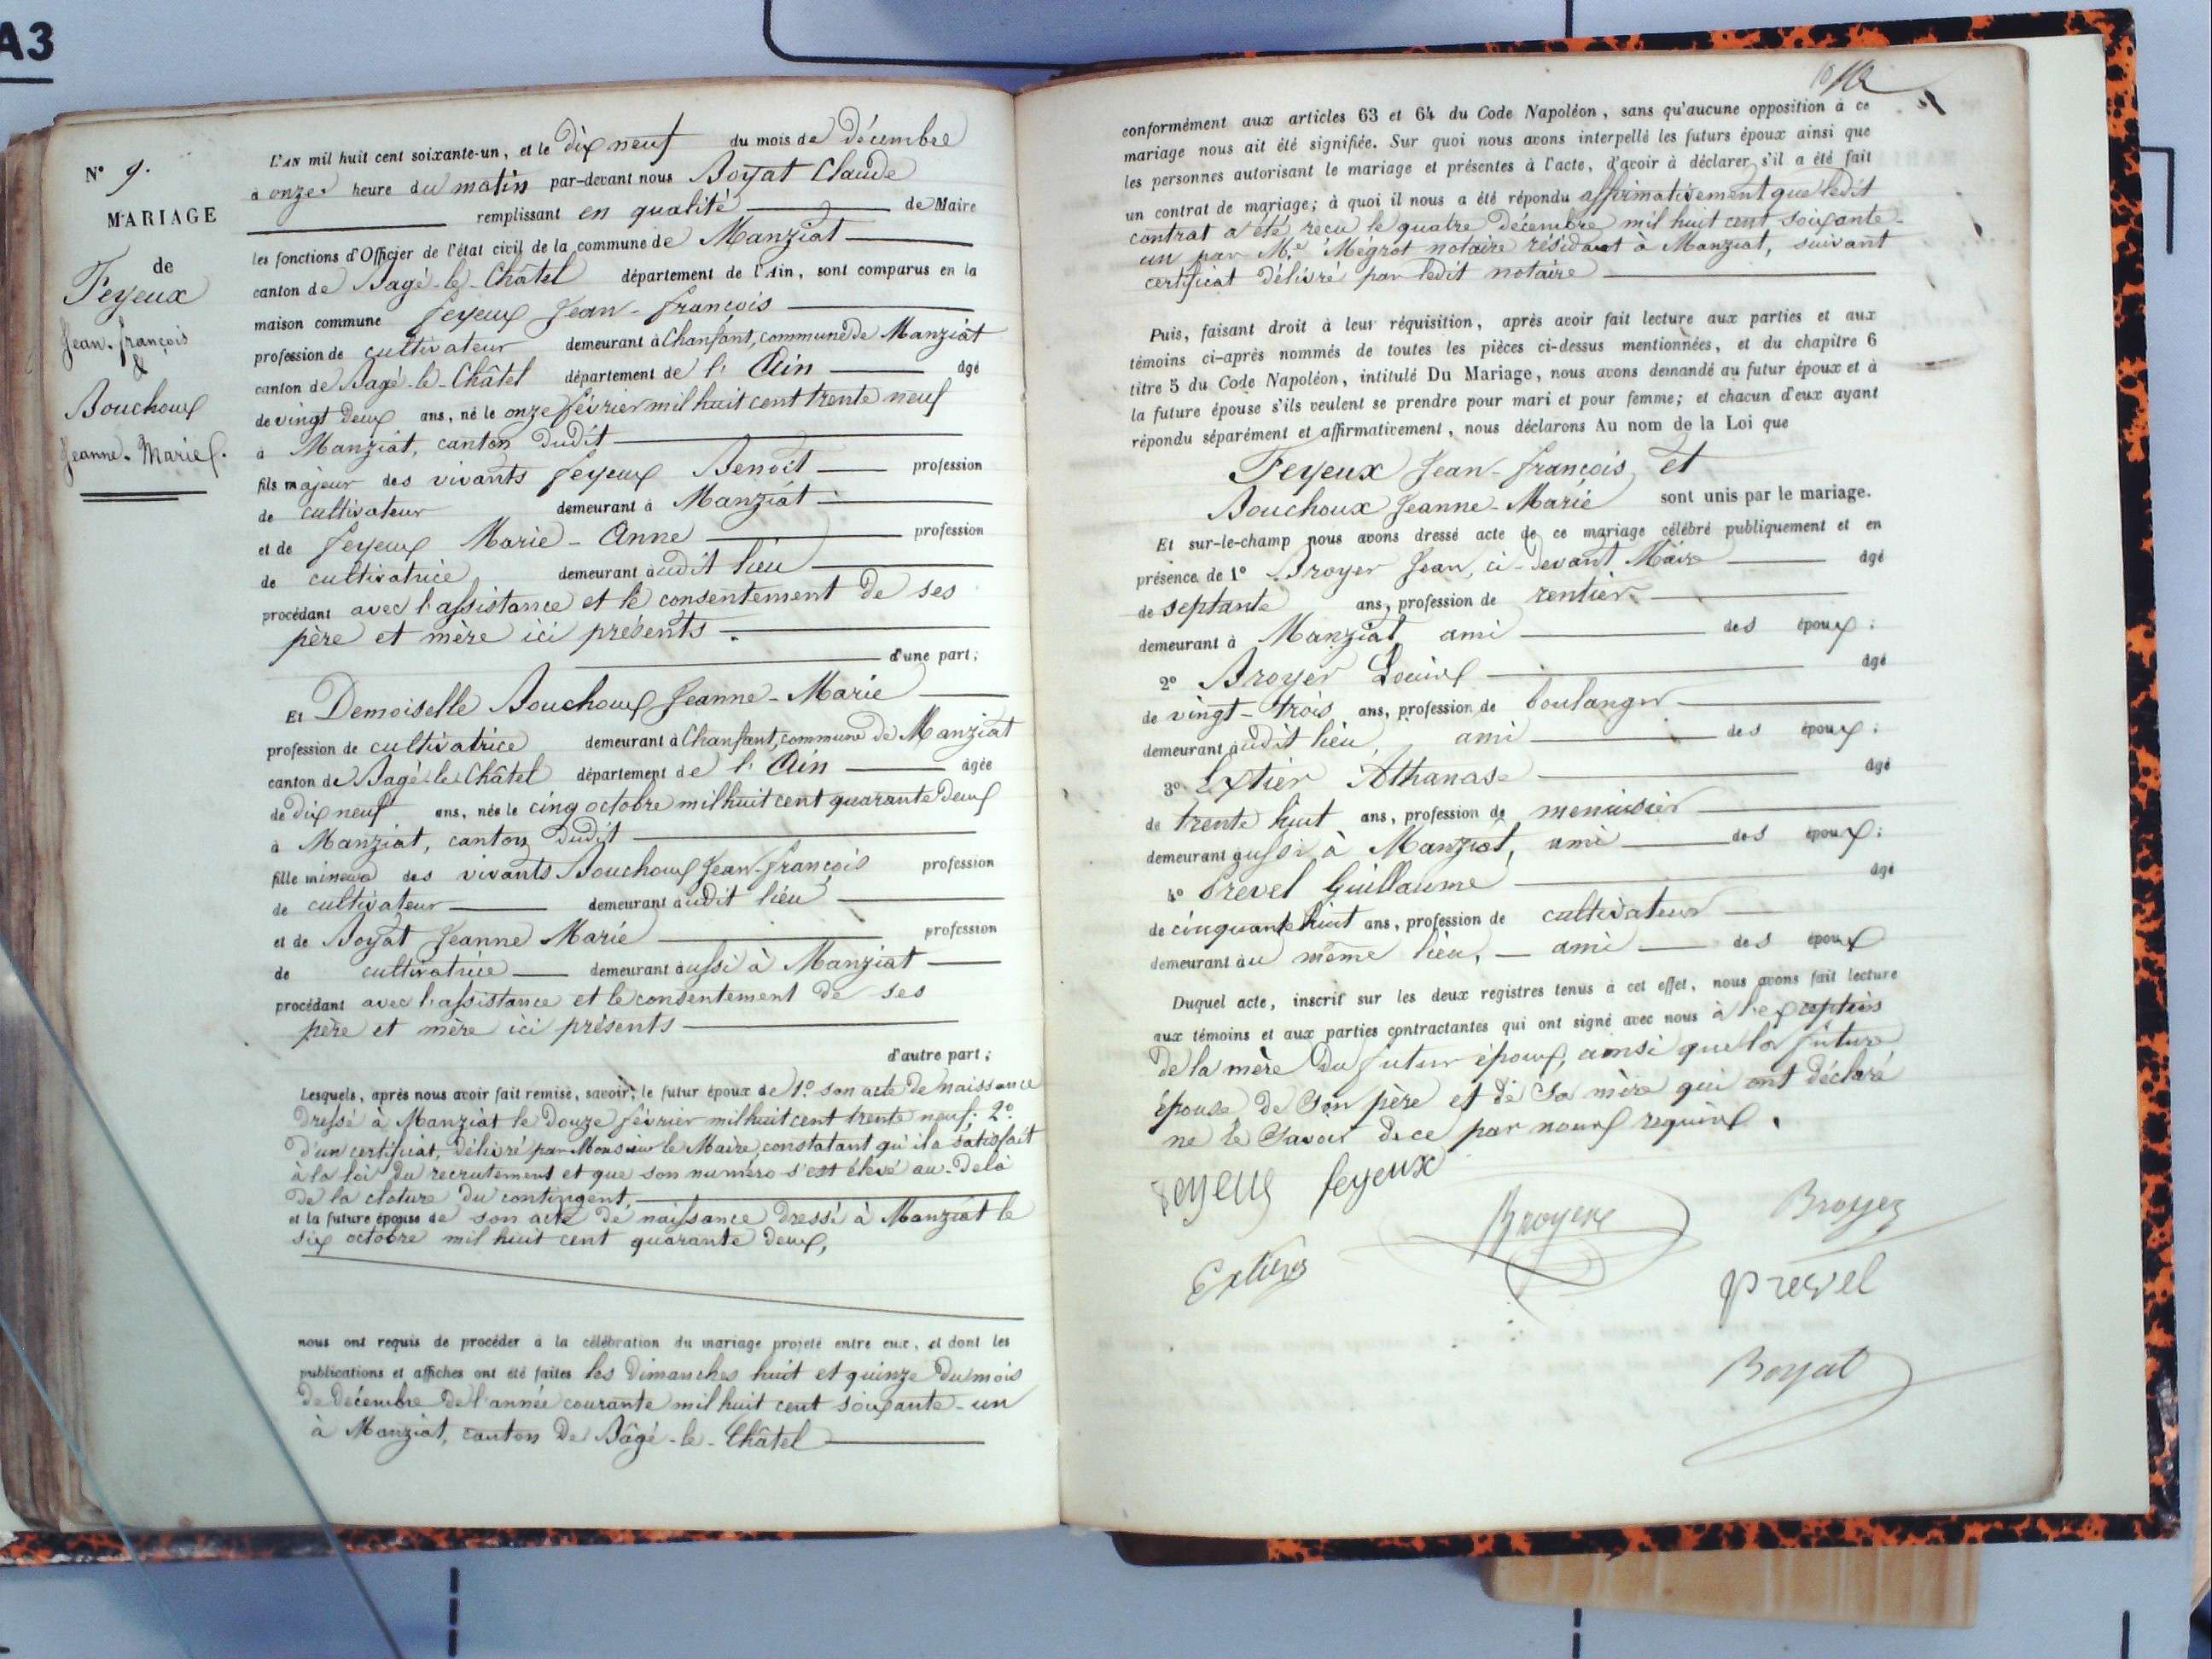 A3
N° 9.
MARIAGE
de
Feyeux
Jean-françois
&
Bouchoux
Jeanne-Marie.
L'AN mil huit cent soixante-un, et le dix neuf du mois de décembre
à onze heure du matin par-devant nous Boyat Claude
remplissant en qualité de Maire
les fonctions d'Officier de l'état civil de la commune de Manziat
canton de Bagé-le-Châtel département de l'Ain, sont comparus en la
maison commune feyeux Jean-françois
profession de cultivateur demeurant à Chanfant, commune de Manziat
canton de Bagé-le-Châtel département de l'Ain âgé
de vingt deux ans, né le onze février mil huit cent trente neuf
à Manziat, canton dudit
fils majeur des vivants feyeux Benoit profession
de cultivateur demeurant à Manziat
et de feyeux Marie-Anne profession
de cultivatrice demeurant audit lieu
procédant avec l'assistance et le consentement de ses
père et mère ici présents.
d'une part;
Et Demoiselle Bouchoux Jeanne-Marie
profession de cultivatrice demeurant à Chanfant, commune de Manziat
canton de Bagé-le-Châtel département de l'Ain âgée
de dix neuf ans, née le cinq octobre mil huit cent quarante deux
à Manziat, canton dudit
fille mineure des vivants Bouchoux Jean-françois profession
de cultivateur demeurant audit lieu
et de Boyat Jeanne Marie profession
de cultivatrice demeurant aussi à Manziat
procédant avec l'assistance et le consentement de ses
père et mère ici présents
d'autre part;
Lesquels, après nous avoir fait remise, savoir; le futur époux de 1° son acte de naissance
dressé à Manziat le douze février mil huit cent trente neuf. 2°
d'un certificat, délivré par Monsieur le Maire, constatant qu'il a satisfait
à la loi du recrutement et que son numéro s'est élevé au-delà
de la cloture du contingent,
et la future épouse de son acte de naissance dressé à Manziat le
six octobre mil huit cent quarante deux,
nous ont requis de procéder à la célébration du mariage projeté entre eux, et dont les
publications et affiches ont été faites les dimanches huit et quinze du mois
de décembre de l'année courante mil huit cent soixante-un
à Manziat, canton de Bâgé-le-Châtel
conformément aux articles 63 et 64 du Code Napoléon, sans qu'aucune opposition à ce
mariage nous ait été signifiée. Sur quoi nous avons interpellé les futurs époux ainsi que
les personnes autorisant le mariage et présentes à l'acte, d'avoir à déclarer s'il a été fait
un contrat de mariage; à quoi il nous a été répondu affirmativement que ledit
contrat a été reçu le quatre décembre mil huit cent soixante-
un par Me Mégrot notaire résidant à Manziat, suivant
certificat délivré par ledit notaire
Puis, faisant droit à leur réquisition, après avoir fait lecture aux parties et aux
témoins ci-après nommés de toutes les pièces ci-dessus mentionnées, et du chapitre 6
titre 5 du Code Napoléon, intitulé Du Mariage, nous avons demandé au futur époux et à
la future épouse s'ils veulent se prendre pour mari et pour femme; et chacun d'eux ayant
répondu séparément et affirmativement, nous déclarons Au nom de la Loi que
Feyeux Jean-françois et
Bouchoux Jeanne-Marie sont unis par le mariage.
Et sur-le-champ nous avons dressé acte de ce mariage célébré publiquement et en
présence de 1° Broyer Jean, ci-devant Maire âgé
de septante ans, profession de rentier
demeurant à Manziat ami des époux;
2° Broyer Louis âgé
de vingt-trois ans, profession de boulanger
demeurant audit lieu, ami des époux;
3° Extier Athanase âgé
de trente huit ans, profession de menuisier
demeurant aussi à Manziat, ami des époux;
4° Prevel Guillaume âgé
de cinquante huit ans, profession de cultivateur
demeurant au même lieu, ami des époux
Duquel acte, inscrit sur les deux registres tenus à cet effet, nous avons fait lecture
aux témoins et aux parties contractantes qui ont signé avec nous à l'exception
de la mère du futur époux, ainsi que la future
épouse de son père et de sa mère qui ont déclaré
ne le savoir de ce par nous requis.
feyeux feyeux
Broyer Broyer
Extier
prevel
Boyat